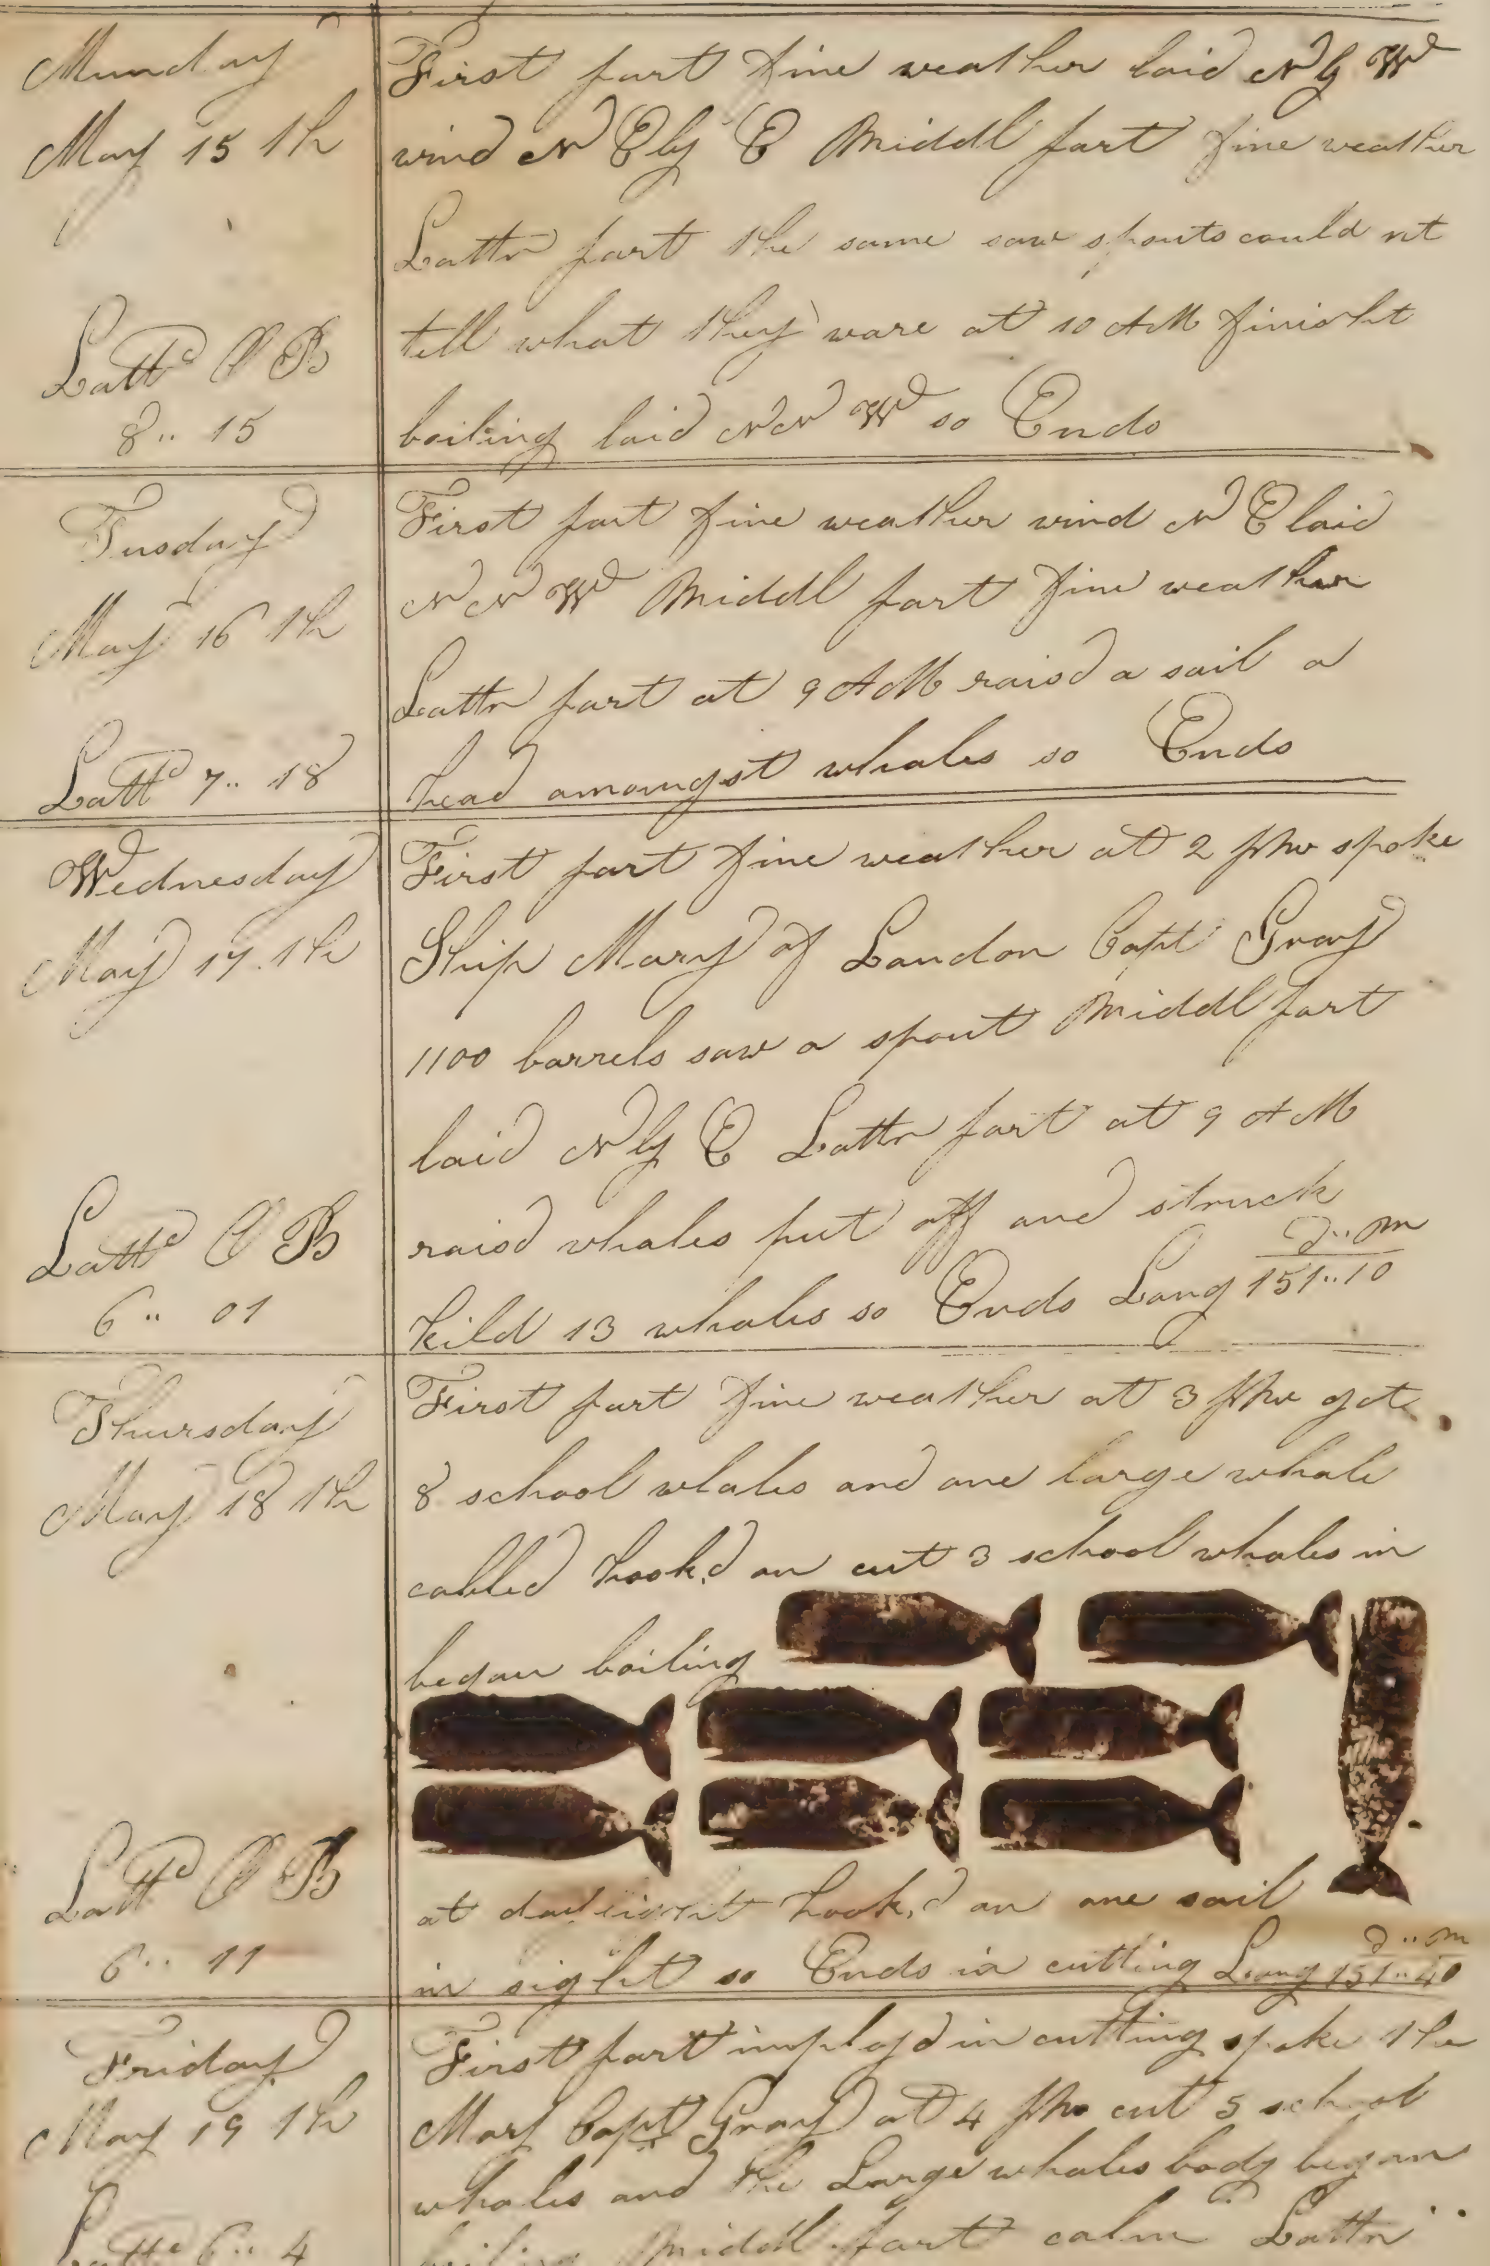 Munday
May 15 th
Lattd O B
8.. 15
First part fine weather laid N by Wd
wind N E by E Middl part fine weather
Lattr part the same saw spouts could nt
till what they ware at 10 AM finisht
boiling laid N N Wd so Ends
Tusday
May 16 th
Lattd 7.. 18
First part fine weather wind N E laid
N N Wd Middl part fine weather
Lattr part at 9 AM raisd a sail a
head amoungst whales so Ends
Wednesday
May 17 th
Lattd O B
6.. 01
First part fine weather at 2 PM spoke
Ship Mary of London Capt Gray
1100 barrels saw a spout Middl part
laid N by E Lattr part at 9 AM
raisd whales put off and struck
kild 13 whales so Ends Long D.. M
151..10
Thursday
May 18 th
Lattd O B
6.. 11
First part fine weather at 3 PM got
8 school whales and one large whale
calld hook,d on cut 3 school whales in
began boiling
at hook,d on one sail
in sight so Ends in cutting Long D.. M
151..40
Friday
May 19 th
Lattd 6.. 4
First part imployd in cutting spoke the
Mary Capt Gray at 4 PM cut 5 school
whales and the Large whales body began
boiling Middl part calm Lattr